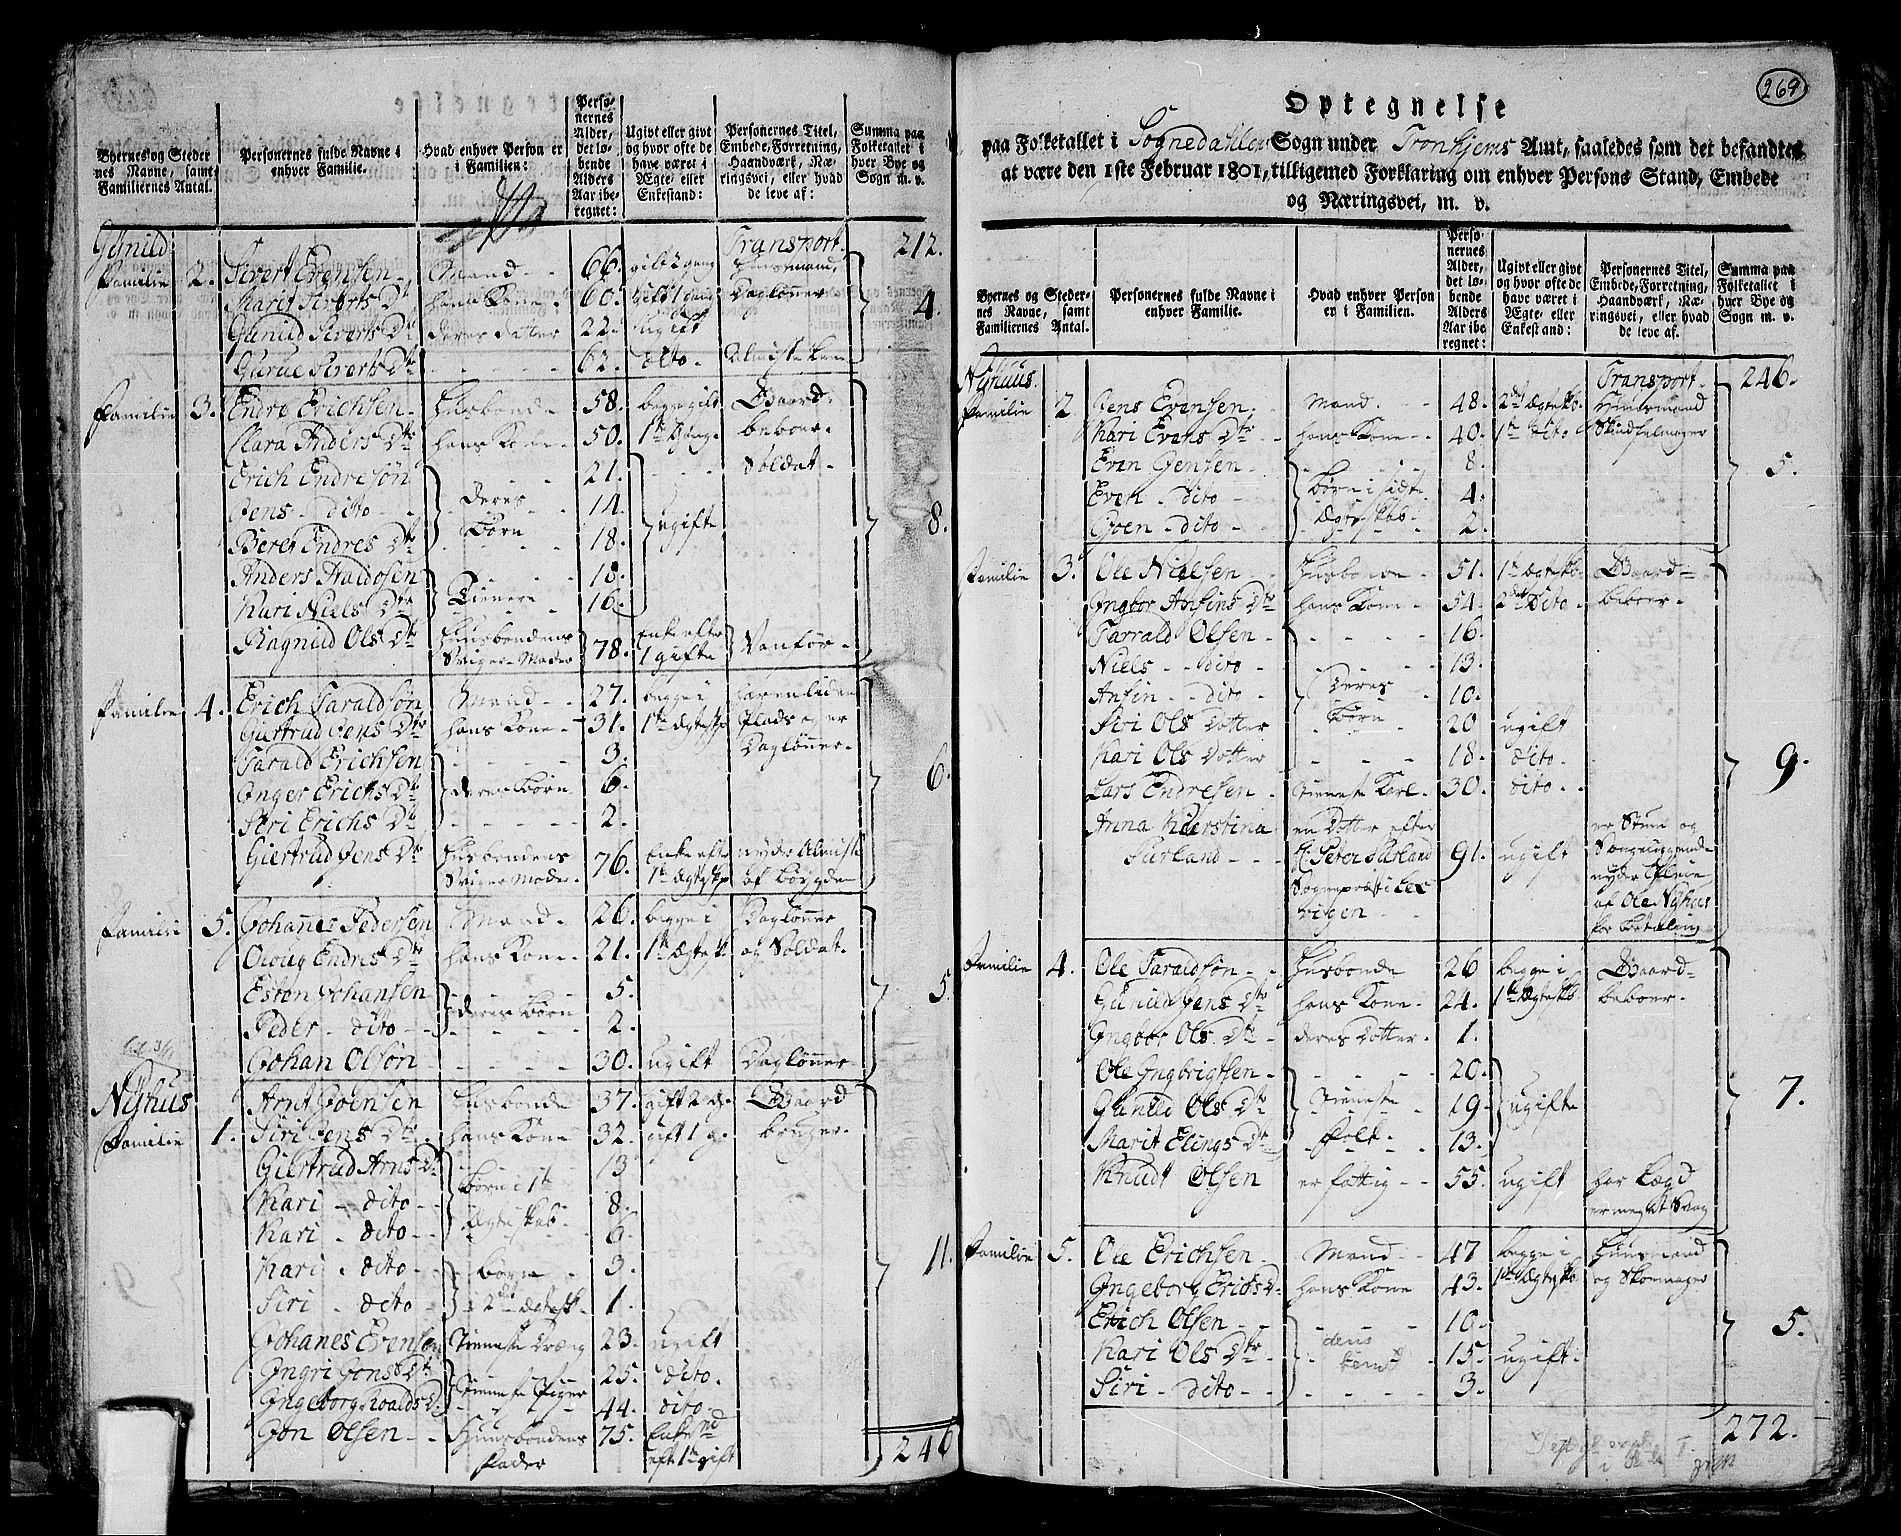 Byernes og Steder
nes Navne, samt
Familiernes Antal.
Personernes fulde Navne i
enhver Familie.
Hvad enhver Person er
i Familien:
Perso-
nernes
Alder,
det lø-
bende
Alders
Aar ibe-
regnet:
Ugivt eller givt
og hvor ofte de
have været i
Ægte- eller
Enkestand:
Personernes Titel,
Embede, Forretning,
Haandværk, Næ-
ringsvei, eller hvad
de leve af:
Summa paa
Folketallet i
hver Bye og
Sogn m. v.
Transport 212.
Familie 2. Sivert Evensen Mand 66. gift 2 gang Huusmand,
Marit Siverts Dt hans Kone 60. gift 1 gang Daglønner 4.
Gunild Siverts Dt deres Datter 22. ugift
Gurue Siverts Dt 62. dito
Familie 3. Endre Erichsen Husbonde 58. begge gift Gaard
Clara Anders Dtr hans Kone 50. 1ste Gang beboer.
Erich Endresøn 21. Soldat
Jens dito deres 14.
Beret Endres Dtr Børn 18. ugifte 8.
Anders Traldosen 18.
Kari Niels Dtr Tienere 16.
Ragnild Ols Dt Husbondens Sviger Moder 78. Enke efter 1 gifte Vanfør
Familie 4. Erich Taraldsøn Mand 27. begge i
Giertrud Jens Dtr hans Kone 31. 1ste Ægtesk Plads og er
Tarald Erichsen 3. Daglønner
Inger Erichs Dt deres Børn 6. 6.
Siri Erichs Dt 2.
Giertrud Jens Dtr Husbondens Sviger Moder 76. Enke efter 1ste Ægtesk nyder Almisse af Bøygden
Familie 5. Johannes Pedersen Mand 26. begge i Daglønner
Oloug Endres Dtr hans Kone 21. 1ste Ægtesk og Soldat.
Esten Johansen deres Børn 5. 5.
Peder dito 2.
Johan Olsøn 30. ugift Daglønner
Nyhus
Familie 1. Arnt Joensen Husbonde 37. gift 2 g. Gaard
Siri Jens Dtr hans Kone 32. gift 1 g. bruger.
Giertrud Arns Dt Børn i 1ste 13
Kari dito Ægteskab 8.
Kari dito 6
Kari dito Børn 3. 11.
Siri dito i 2det Ægtesk 1.
Johanes Evensen Tieneste Dræng 23. ugift
Ingri Jons Dt Tieneste Piger 25. dito.
Ingeborg Roalds D. 44. dito
Jon Olsen Huusbondens Fader 75. Enkemd eft 1ste gift
246
269
Optegnelse
paa Folketallet i Sognedahlen Sogn under Tronhjems Amt, saaledes som det befandtes
at være den 1ste Februar 1801, tilligemed Forklaring om enhver Persons Stand, Embede
og Næringsvei, m. v.
Byernes og Steder-
nes Navne, samt
Familiernes Antal.
Personernes fulde Navne i
enhver Familie.
Hvad enhver Person
er i Familien.
Perso-
nernes
Alder,
det lø-
bende
Alders
Aar ibe-
regnet:
Ugivt eller givt
og hvor ofte de
have været i
Ægte- eller
Enkestand:
Personernes Titel,
Embede, Forretning,
Haandværk, Næ-
ringsvei, eller hvad
de leve af.
Summa paa
Folketallet i
hver Bye og
Sogn m. v.
Nyhuus. Transport 246.
Familie 2 Jens Evensen Mand 48. 2det Ægtesk. Huusmand
Kari Evens Dtr hans Kone 40. 1ste dito
Even Jensen 8.
Even dito Børn i sidste 4. 5.
Joen dito Ægteskab 2.
Familie 3. Ole Nielsen Husbonde 51. 1ste Ægtesk. Gaard
Ingbor Ansins Dtr hans Kone 54. 2det Dito beboer.
Tarrald Olsen 16.
Niels dito 13.
Ansin dito Deres 10.
Siri Ols Dotter Børn 20 ugift
Kari Ols Dotter 18. dito 9.
Lars Endresen Tieneste Karl 30. dito
Anna Kierstina en Dotter efter er Stum og
Surland Hr. Peter Surland 91. ugift Sængeliggende
Sognepræst i Lex nyder Pleie
vigen af Ole Nyhus
for Betaling
Familie 4. Ole Taraldsøn Husbonde 26 begge i Gaard
Gunild Jens Dtr hans Kone 24. 1ste Ægtesk. beboer.
Ingbor Ols Dtr deres Dotter 1.
Ole Ingbrigtsen 20.
Gunild Ols Dtr Tieneste 19. ugifte 7.
Marit Elings Dt Folk 13.
Knudt Olsen er fattig 55. ugift har Lægd
er meget Svag
Familie 5. Ole Erichsen Mand 47 begge i Huusmand
Ingeborg Erichs D. hans Kone 43. 1ste Ægtesk. og Skomager
Erich Olsen 16.
Kari Ols Dtr 15. ugift. 5.
Siri dito 3.
272.